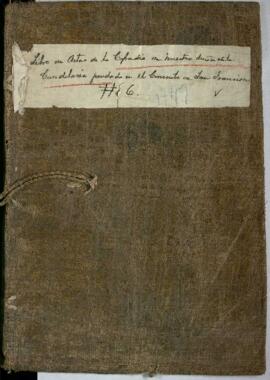 Libro de Actas de la Cofradia de Nuestra Señora de la
Candelaria fundada en el Convento de San Francisco
Nº 6.